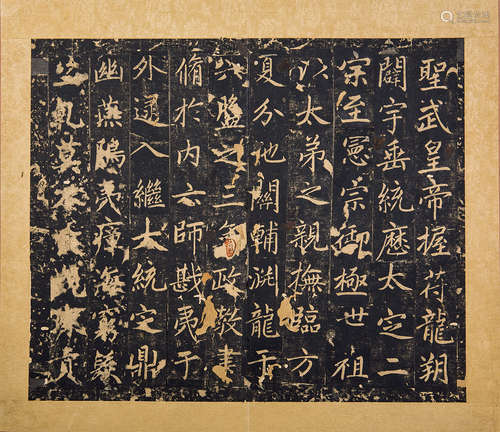 聖武皇帝握苻龍朔
闢宇垂統歷太定二
宗至憲宗御極世祖
以太弟之親撫臨方
夏分地關輔渊龍于
六盤之三年政教
脩於內六師戡夷于
外遂入繼大統定鼎
幽燕隝夷瘴海窮髮
之莫